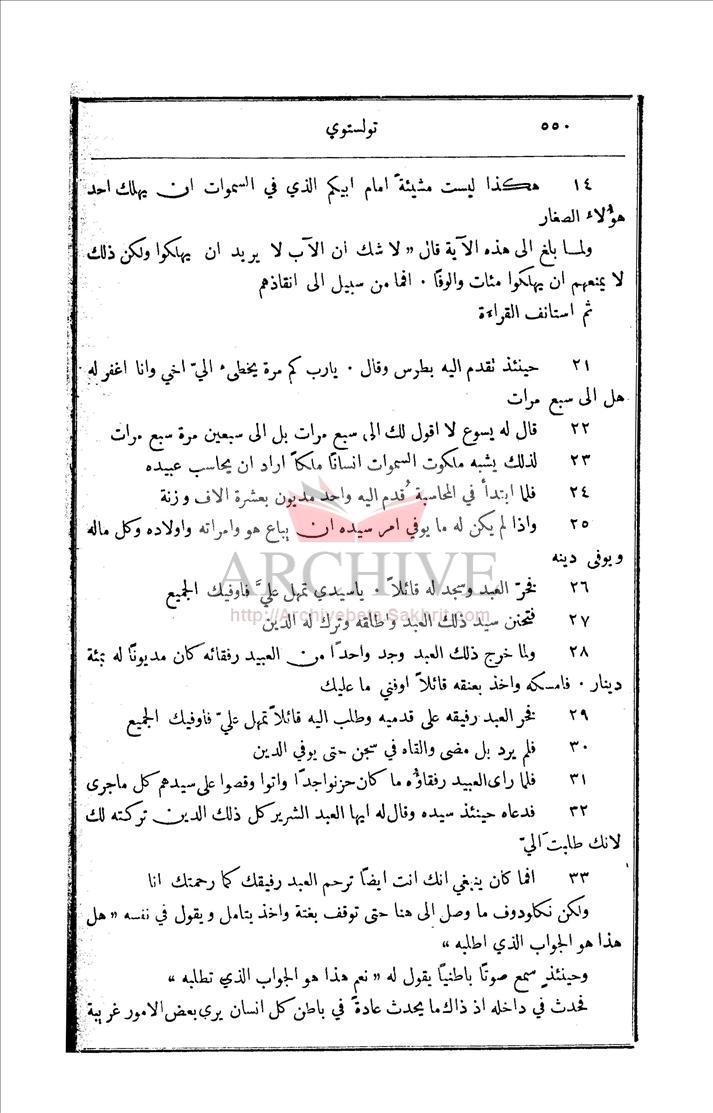 ٥٥٠ تولستوي
١٤ هكذا ليست مشيئةً امام ابيكم الذي في السموات ان يهلك احد
هؤلاء الصغار
ولما بلغ الى هذه الآية قال « لا شك ان الآب لا يريد ان يهلكوا ولكن ذلك
لا يمنعهم ان يهلكوا مئات والوفًا ٠ افما من سبيل الى انقاذهم
ثم استانف القراءة
٢١ حينئذ تقدم اليه بطرس وقال ٠ يارب كم مرة يخطىء اليّ اخي وانا اغفر له
هل الى سبع مرات
٢٢ قال له يسوع لا اقول لك الى سبع مرات بل الى سبعين مرة سبع مرات
٢٣ لذلك يشبه ملكوت السموات انسانًا ملكًا اراد ان يحاسب عبيده
٢٤ فلما ابتدأ في المحاسبة قُدم اليه واحد مديون بعشرة الاف وزنة
٢٥ واذا لم يكن له ما يوفي امر سيده ان يباع هو وامراته واولاده وكل ماله
ويوفى دينه
ARCHIVE
٢٦ فخرّ العبد وسجد له قائلاً ٠ ياسيدي تمهل عليَّ فاوفيك الجميع
http://Archivebeta.Sakhrit.com
٢٧ فتحنن سيد ذلك العبد واطلقه وترك له الدين
٢٨ ولما خرج ذلك العبد وجد واحدًا من العبيد رفقائه كان مديونًا له بمئة
دينار ٠ فامسكه واخذ بعنقه قائلاً اوفني ما عليك
٢٩ فخر العبد رفيقه على قدميه وطلب اليه قائلاً تمهل عليّ فاوفيك الجميع
٣٠ فلم يرد بل مضى والقاه في سجن حتى يوفي الدين
٣١ فلما راى العبيد رفقاؤه ما كان حزنواجدًا واتوا وقصوا على سيدهم كل ماجرى
٣٢ فدعاه حينئذ سيده وقال له ايها العبد الشرير كل ذلك الدين تركته لك
لانك طلبت اليّ
٣٣ افما كان ينبغي انك انت ايضًا ترحم العبد رفيقك كما رحمتك انا
ولكن نكلودوف ما وصل الى هنا حتى توقف بغتة واخذ يتامل ويقول في نفسه « هل
هذا هو الجواب الذي اطلبه »
وحينئذٍ سمع صوتًا باطنيًا يقول له « نعم هذا هو الجواب الذي تطلبه »
فحدث في داخله اذ ذاك ما يحدث عادةً في باطن كل انسان يرى بعض الامور غريبة